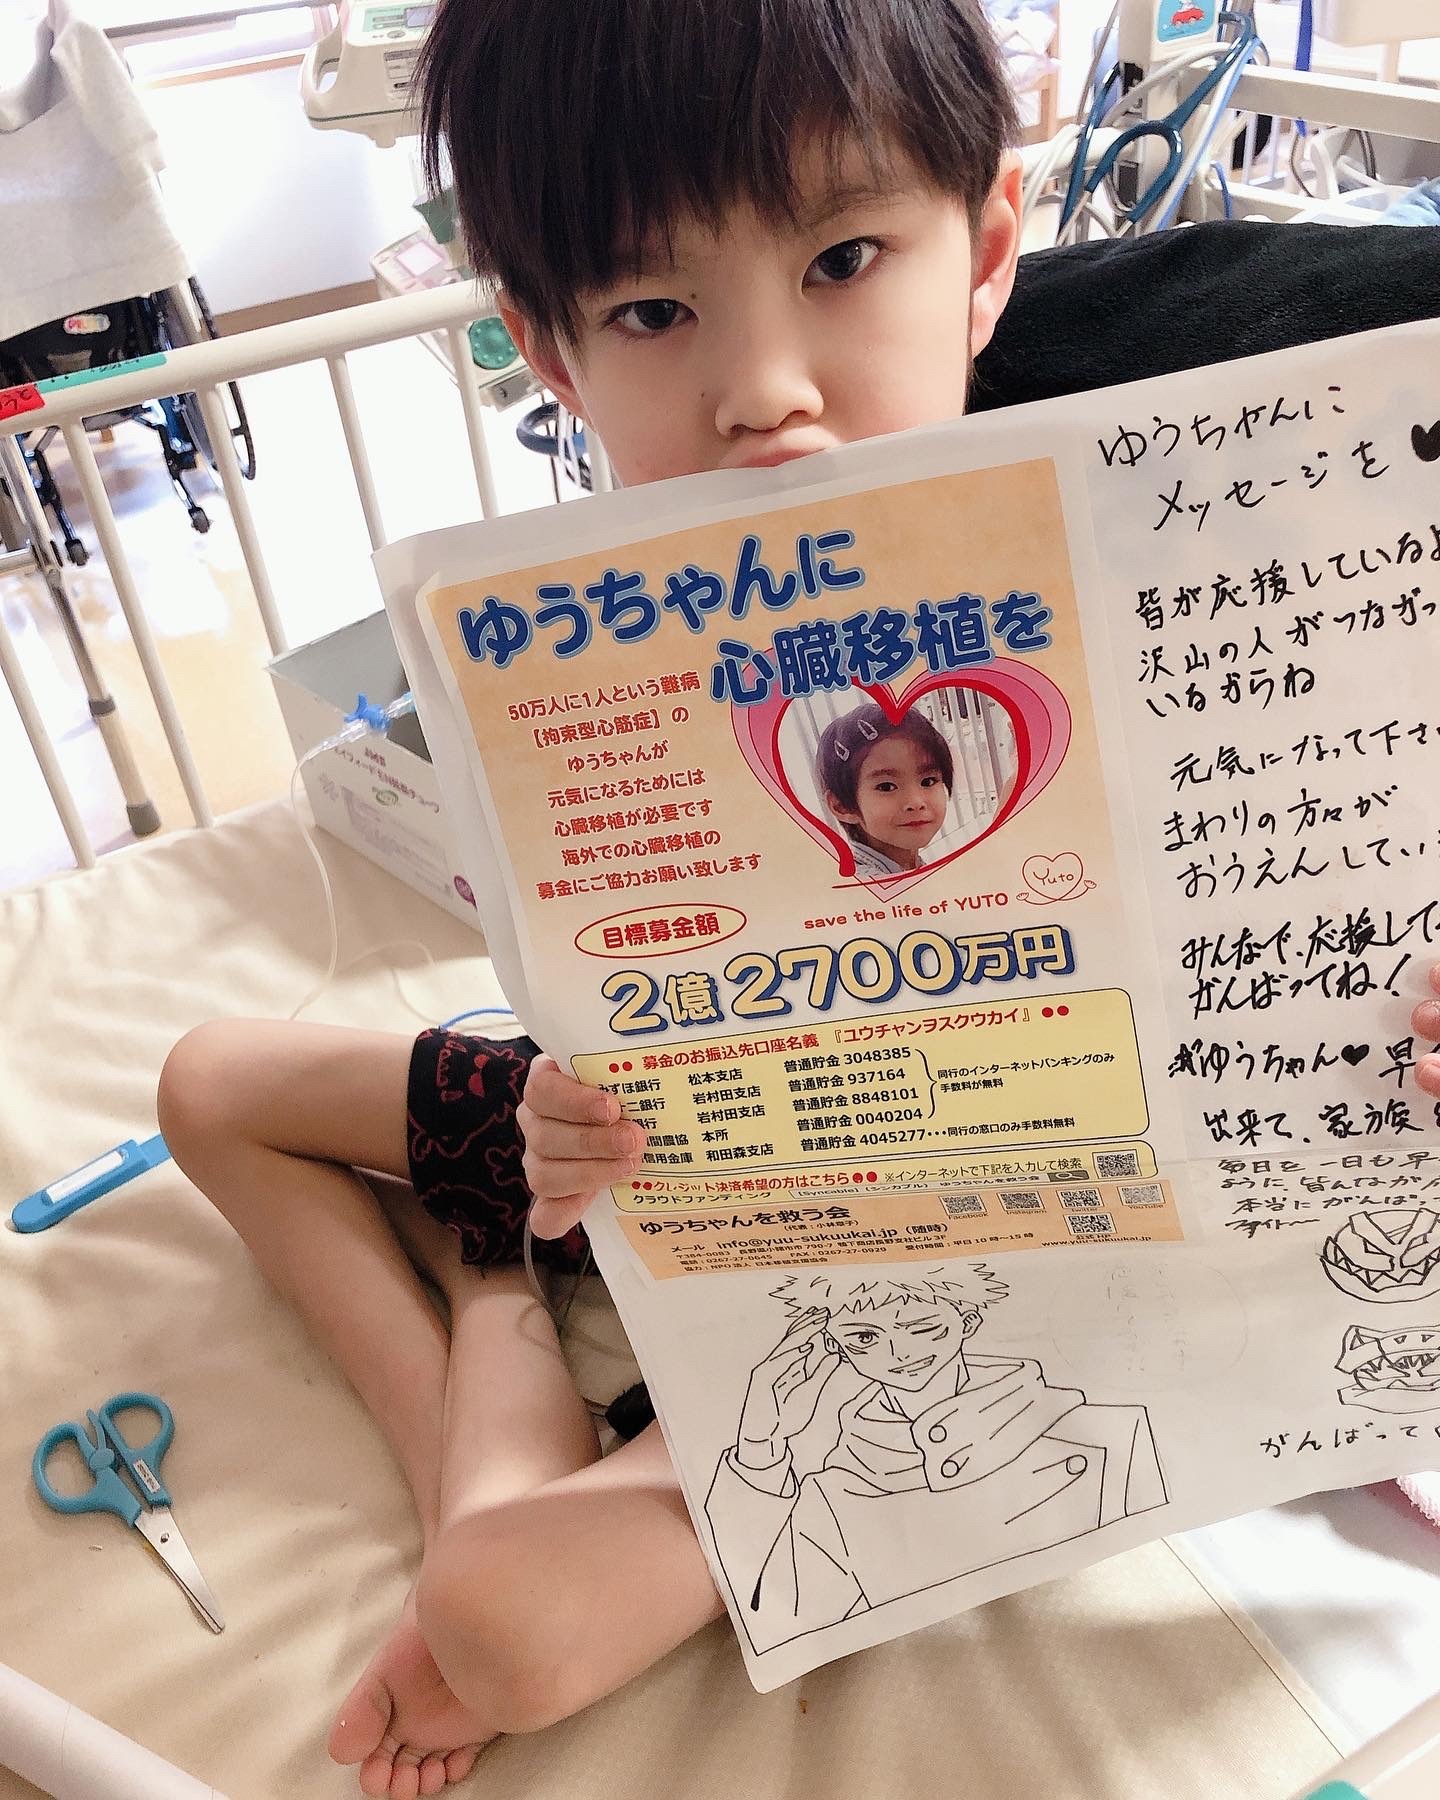 ゆうちゃんに
心臓移植を
50万人に1人という難病
【拘束型心筋症】の
ゆうちゃんが
元気になるためには
心臓移植が必要です
海外での心臓移植の
募金にご協力お願い致します
Yuto
save the life of YUTO
目標募金額
2億2700万円
●● 募金のお振込先口座名義 『ユウチャンヲスクウカイ』 ●●
みずほ銀行 松本支店 普通貯金 3048385
二銀行 岩村田支店 普通貯金 937164
銀行 岩村田支店 普通貯金 8848101
農協 本所 普通貯金 0040204
信用金庫 和田森支店 普通貯金 4045277・・・同行の窓口のみ手数料無料
同行のインターネットバンキングのみ
手数料が無料
●●クレジット決済希望の方はこちら●● ※インターネットで下記を入力して検索
クラウドファンディング 【Syncable】(シンカブル) ゆうちゃんを救う会
ゆうちゃんを救う会
(代表：小林章子)
メール info@yuu-sukuukai.jp（随時）
電話：0267-27-0645 FAX：0267-27-0929 受付時間：平日10時～15時
協力：NPO法人 日本移植支援協会
Facebook Instagram Twitter YouTube
公式HP
www.yuu-sukuukai.jp
ゆうちゃんに
メッセージを♥
皆が応援しているよ
沢山の人がつながっ
いるからね
元気になって下さ
まわりの方々が
おうえんしてい
みんなで、応援して
がんばってね!
ゆうちゃん♥早
出来て、家族
毎日を一日も早
ように、皆んなが
本当にがんばっ
がんばって